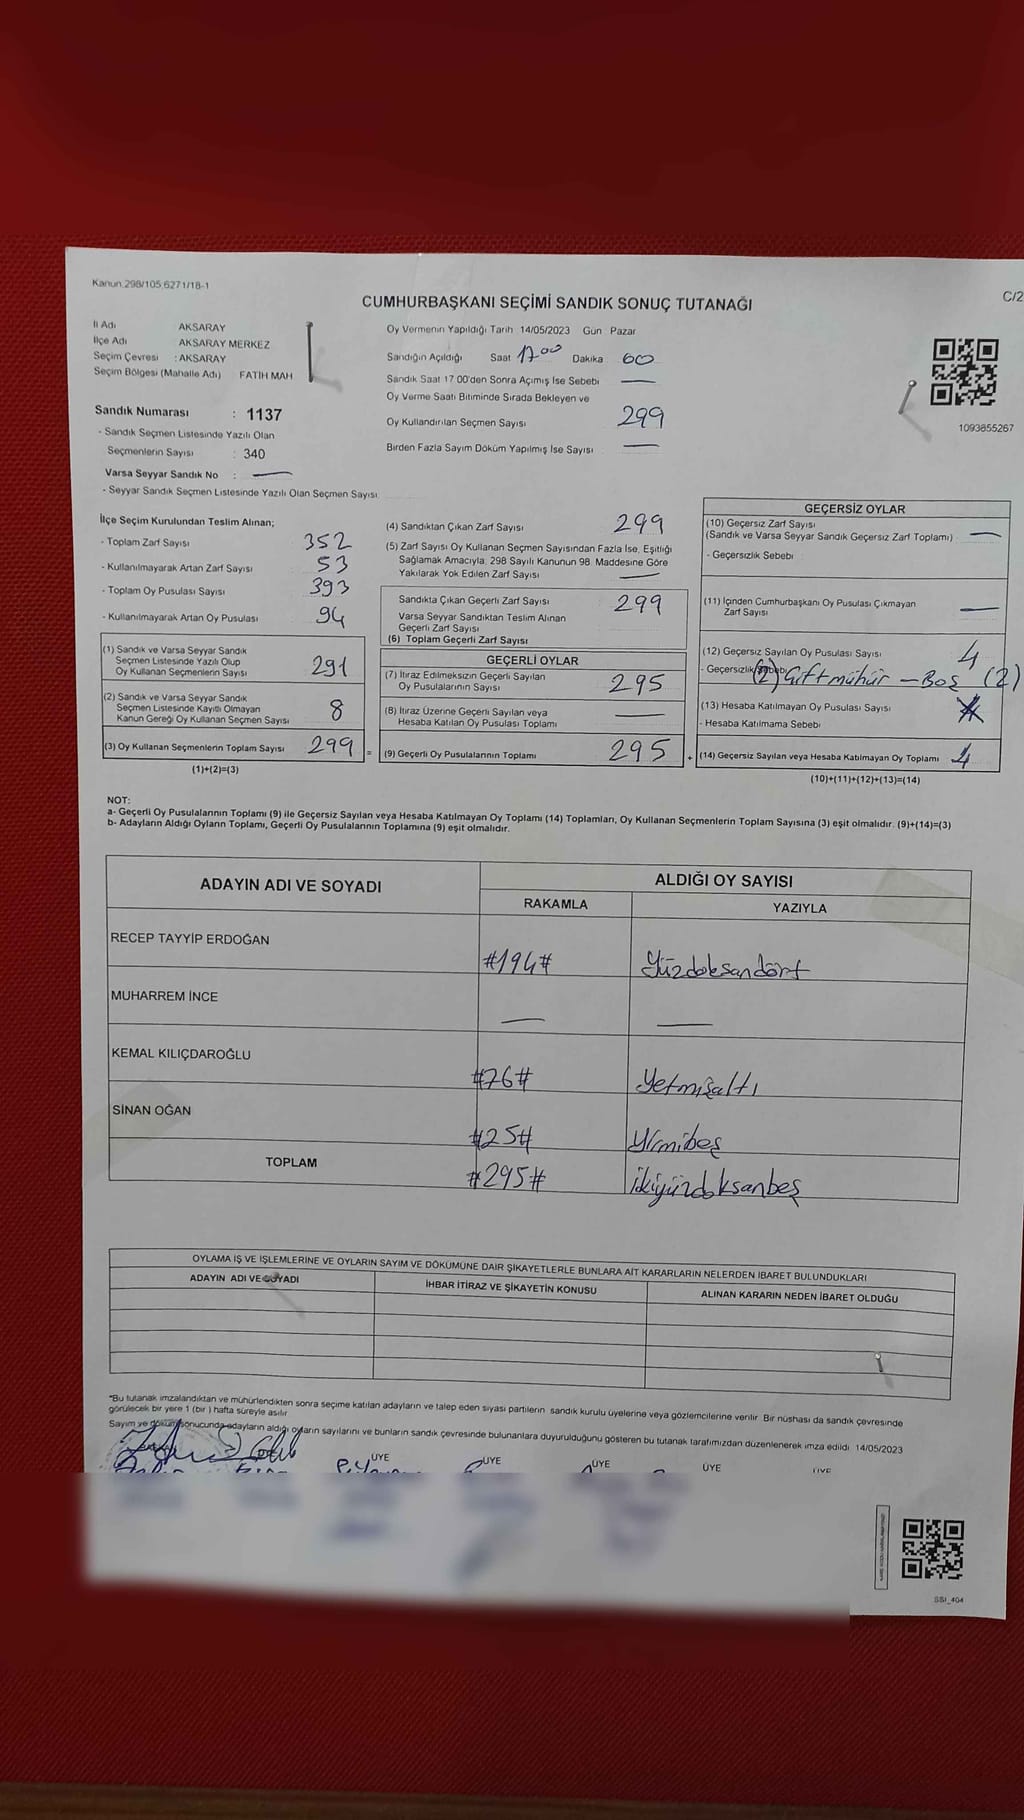 Kanun.298/105,6271/18-1
C/2
CUMHURBAŞKANI SEÇİMİ SANDIK SONUÇ TUTANAĞI
İl Adı AKSARAY
İlçe Adı AKSARAY MERKEZ
Seçim Çevresi : AKSARAY
Seçim Bölgesi (Mahalle Adı) FATİH MAH
Sandık Numarası : 1137
- Sandık Seçmen Listesinde Yazılı Olan
Seçmenlerin Sayısı : 340
Varsa Seyyar Sandık No : —
- Seyyar Sandık Seçmen Listesinde Yazılı Olan Seçmen Sayısı:
Oy Vermenin Yapıldığı Tarih 14/05/2023 Gün Pazar
Sandığın Açıldığı Saat 17.00 Dakika 60
Sandık Saat 17 00'den Sonra Açımış İse Sebebi —
Oy Verme Saati Bitiminde Sırada Bekleyen ve
Oy Kullandırılan Seçmen Sayısı 299
Birden Fazla Sayım Döküm Yapılmış İse Sayısı —
1093855267
İlçe Seçim Kurulundan Teslim Alınan;
- Toplam Zarf Sayısı 352
- Kullanılmayarak Artan Zarf Sayısı 53
- Toplam Oy Pusulası Sayısı 393
- Kullanılmayarak Artan Oy Pusulası 94
(1) Sandık ve Varsa Seyyar Sandık
Seçmen Listesinde Yazılı Olup
Oy Kullanan Seçmenlerin Sayısı 291
(2) Sandık ve Varsa Seyyar Sandık
Seçmen Listesinde Kayıtlı Olmayan
Kanun Gereği Oy Kullanan Seçmen Sayısı 8
(3) Oy Kullanan Seçmenlerin Toplam Sayısı 299 =
(1)+(2)=(3)
(4) Sandıktan Çıkan Zarf Sayısı 299
(5) Zarf Sayısı Oy Kullanan Seçmen Sayısından Fazla İse, Eşitliği
Sağlamak Amacıyla, 298 Sayılı Kanunun 98. Maddesine Göre
Yakılarak Yok Edilen Zarf Sayısı —
Sandıkta Çıkan Geçerli Zarf Sayısı 299
Varsa Seyyar Sandıktan Teslim Alınan
Geçerli Zarf Sayısı
(6) Toplam Geçerli Zarf Sayısı
GEÇERLİ OYLAR
(7) İtiraz Edilmeksizin Geçerli Sayılan
Oy Pusulalarının Sayısı 295
(8) İtiraz Üzerine Geçerli Sayılan veya
Hesaba Katılan Oy Pusulası Toplamı —
(9) Geçerli Oy Pusulalarının Toplamı 295 +
GEÇERSİZ OYLAR
(10) Geçersiz Zarf Sayısı
(Sandık ve Varsa Seyyar Sandık Geçersiz Zarf Toplamı) —
- Geçersizlik Sebebi
(11) İçinden Cumhurbaşkanı Oy Pusulası Çıkmayan
Zarf Sayısı —
(12) Geçersiz Sayılan Oy Pusulası Sayısı 4
- Geçersizlik Sebebi (2) Çift mühür — Boş (2)
(13) Hesaba Katılmayan Oy Pusulası Sayısı
- Hesaba Katılmama Sebebi
(14) Geçersiz Sayılan veya Hesaba Katılmayan Oy Toplamı 4
(10)+(11)+(12)+(13)=(14)
NOT:
a- Geçerli Oy Pusulalarının Toplamı (9) ile Geçersiz Sayılan veya Hesaba Katılmayan Oy Toplamı (14) Toplamları, Oy Kullanan Seçmenlerin Toplam Sayısına (3) eşit olmalıdır. (9)+(14)=(3)
b- Adayların Aldığı Oyların Toplamı, Geçerli Oy Pusulalarının Toplamına (9) eşit olmalıdır.
ADAYIN ADI VE SOYADI ALDIĞI OY SAYISI
RAKAMLA YAZIYLA
RECEP TAYYİP ERDOĞAN #194# Yüzdoksandört
MUHARREM İNCE — —
KEMAL KILIÇDAROĞLU #76# Yetmişaltı
SİNAN OĞAN #25# Yirmibeş
TOPLAM #295# ikiyüzdoksanbeş
OYLAMA İŞ VE İŞLEMLERİNE VE OYLARIN SAYIM VE DÖKÜMÜNE DAİR ŞİKAYETLERLE BUNLARA AİT KARARLARIN NELERDEN İBARET BULUNDUKLARI
ADAYIN ADI VE SOYADI İHBAR İTİRAZ VE ŞİKAYETİN KONUSU ALINAN KARARIN NEDEN İBARET OLDUĞU
*Bu tutanak imzalandıktan ve mühürlendikten sonra seçime katılan adayların ve talep eden siyasi partilerin sandık kurulu üyelerine veya gözlemcilerine verilir. Bir nüshası da sandık çevresinde
görülecek bir yere 1 (bir ) hafta süreyle asılır
Sayım ve döküm sonucunda adayların aldığı oyların sayılarını ve bunların sandık çevresinde bulunanlara duyurulduğunu gösteren bu tutanak tarafımızdan düzenlenerek imza edildi 14/05/2023
ÜYE ÜYE ÜYE ÜYE ÜYE
SSI_404